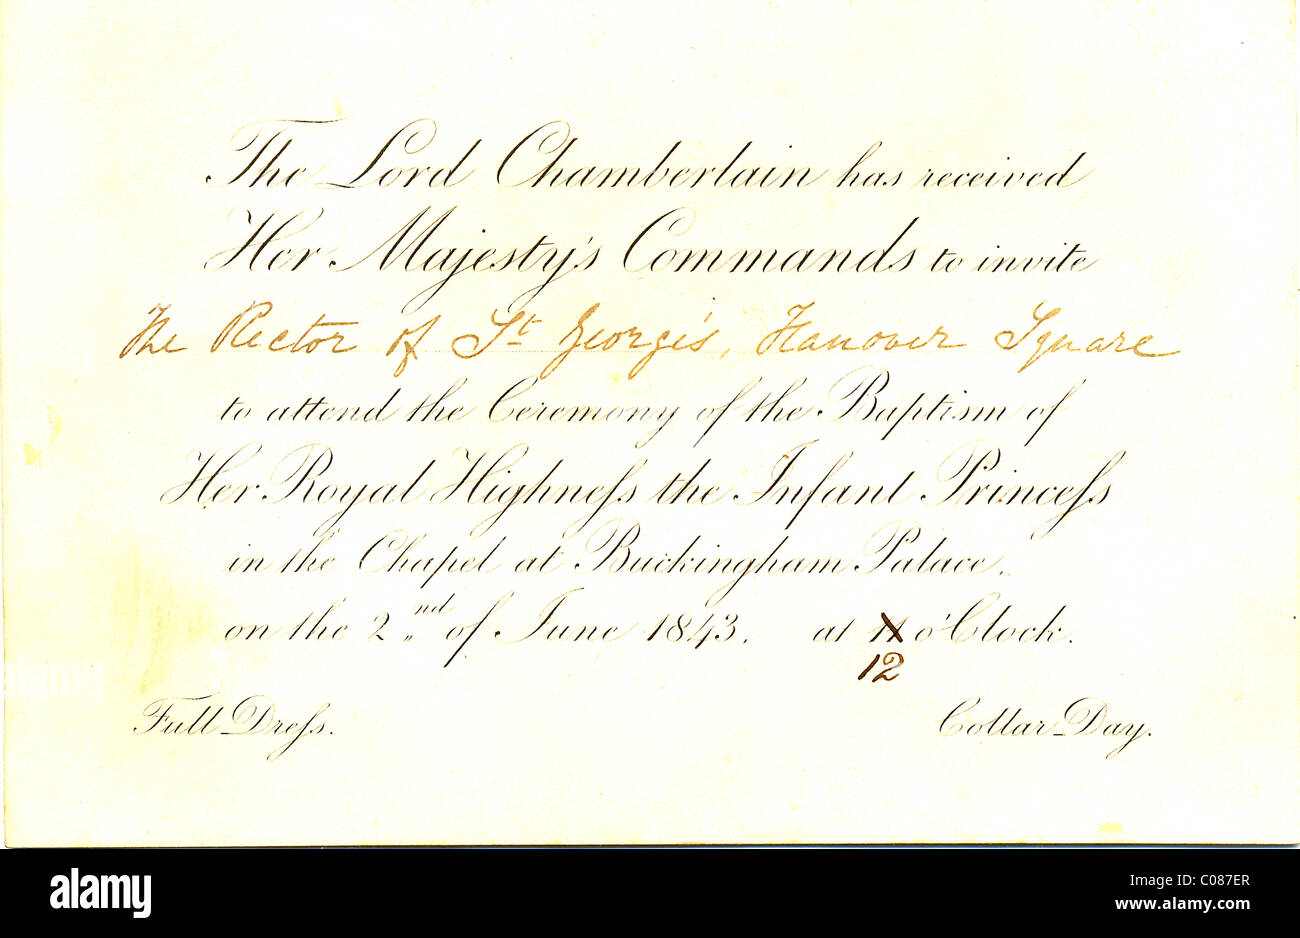 The Lord Chamberlain has received
Her Majesty's Commands to invite
The Rector of St George's, Hanover Square
to attend the Ceremony of the Baptism of
Her Royal Highneſs the Infant Princeſs
in the Chapel at Buckingham Palace.
on the 2nd of June 1843. at 11 o'Clock.
12
Full Dreſs. Collar Day.
alamy
Image ID: C087ER
www.alamy.com